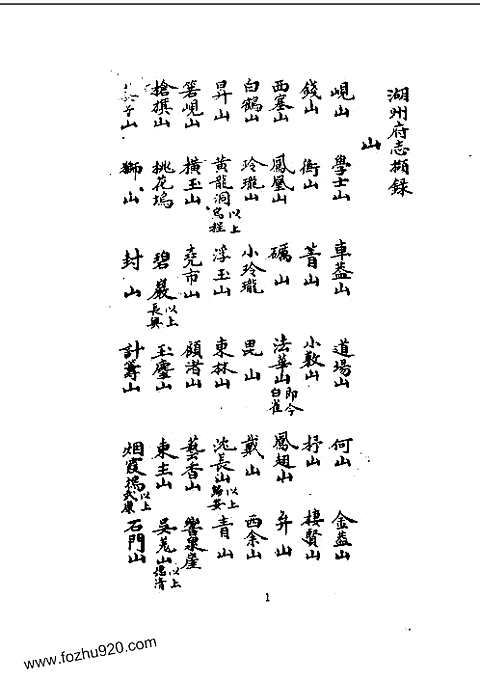 湖州府志擷錄
山
峴山 學士山 車蓋山 道場山 何山 金蓋山
錢山 衡山 菁山 小敷山 杼山 棲賢山
西塞山 鳳凰山 礪山 法華山即今白雀 鳳翅山 弁山
白鶴山 玲瓏山 小玲瓏 毘山 戴山 西余山
昇山 黄龍洞以上烏程 浮玉山 東林山 沈長山以上歸安 青山
箬峴山 橫玉山 堯市山 顧渚山 藝香山 響泉崖
搶撰山 桃花塢 碧巖以上長興 玉塵山 東主山 吳羗山以上德清
子山 獅山 封山 計籌山 烟霞塢以上武康 石門山
1
www.fozhu920.com